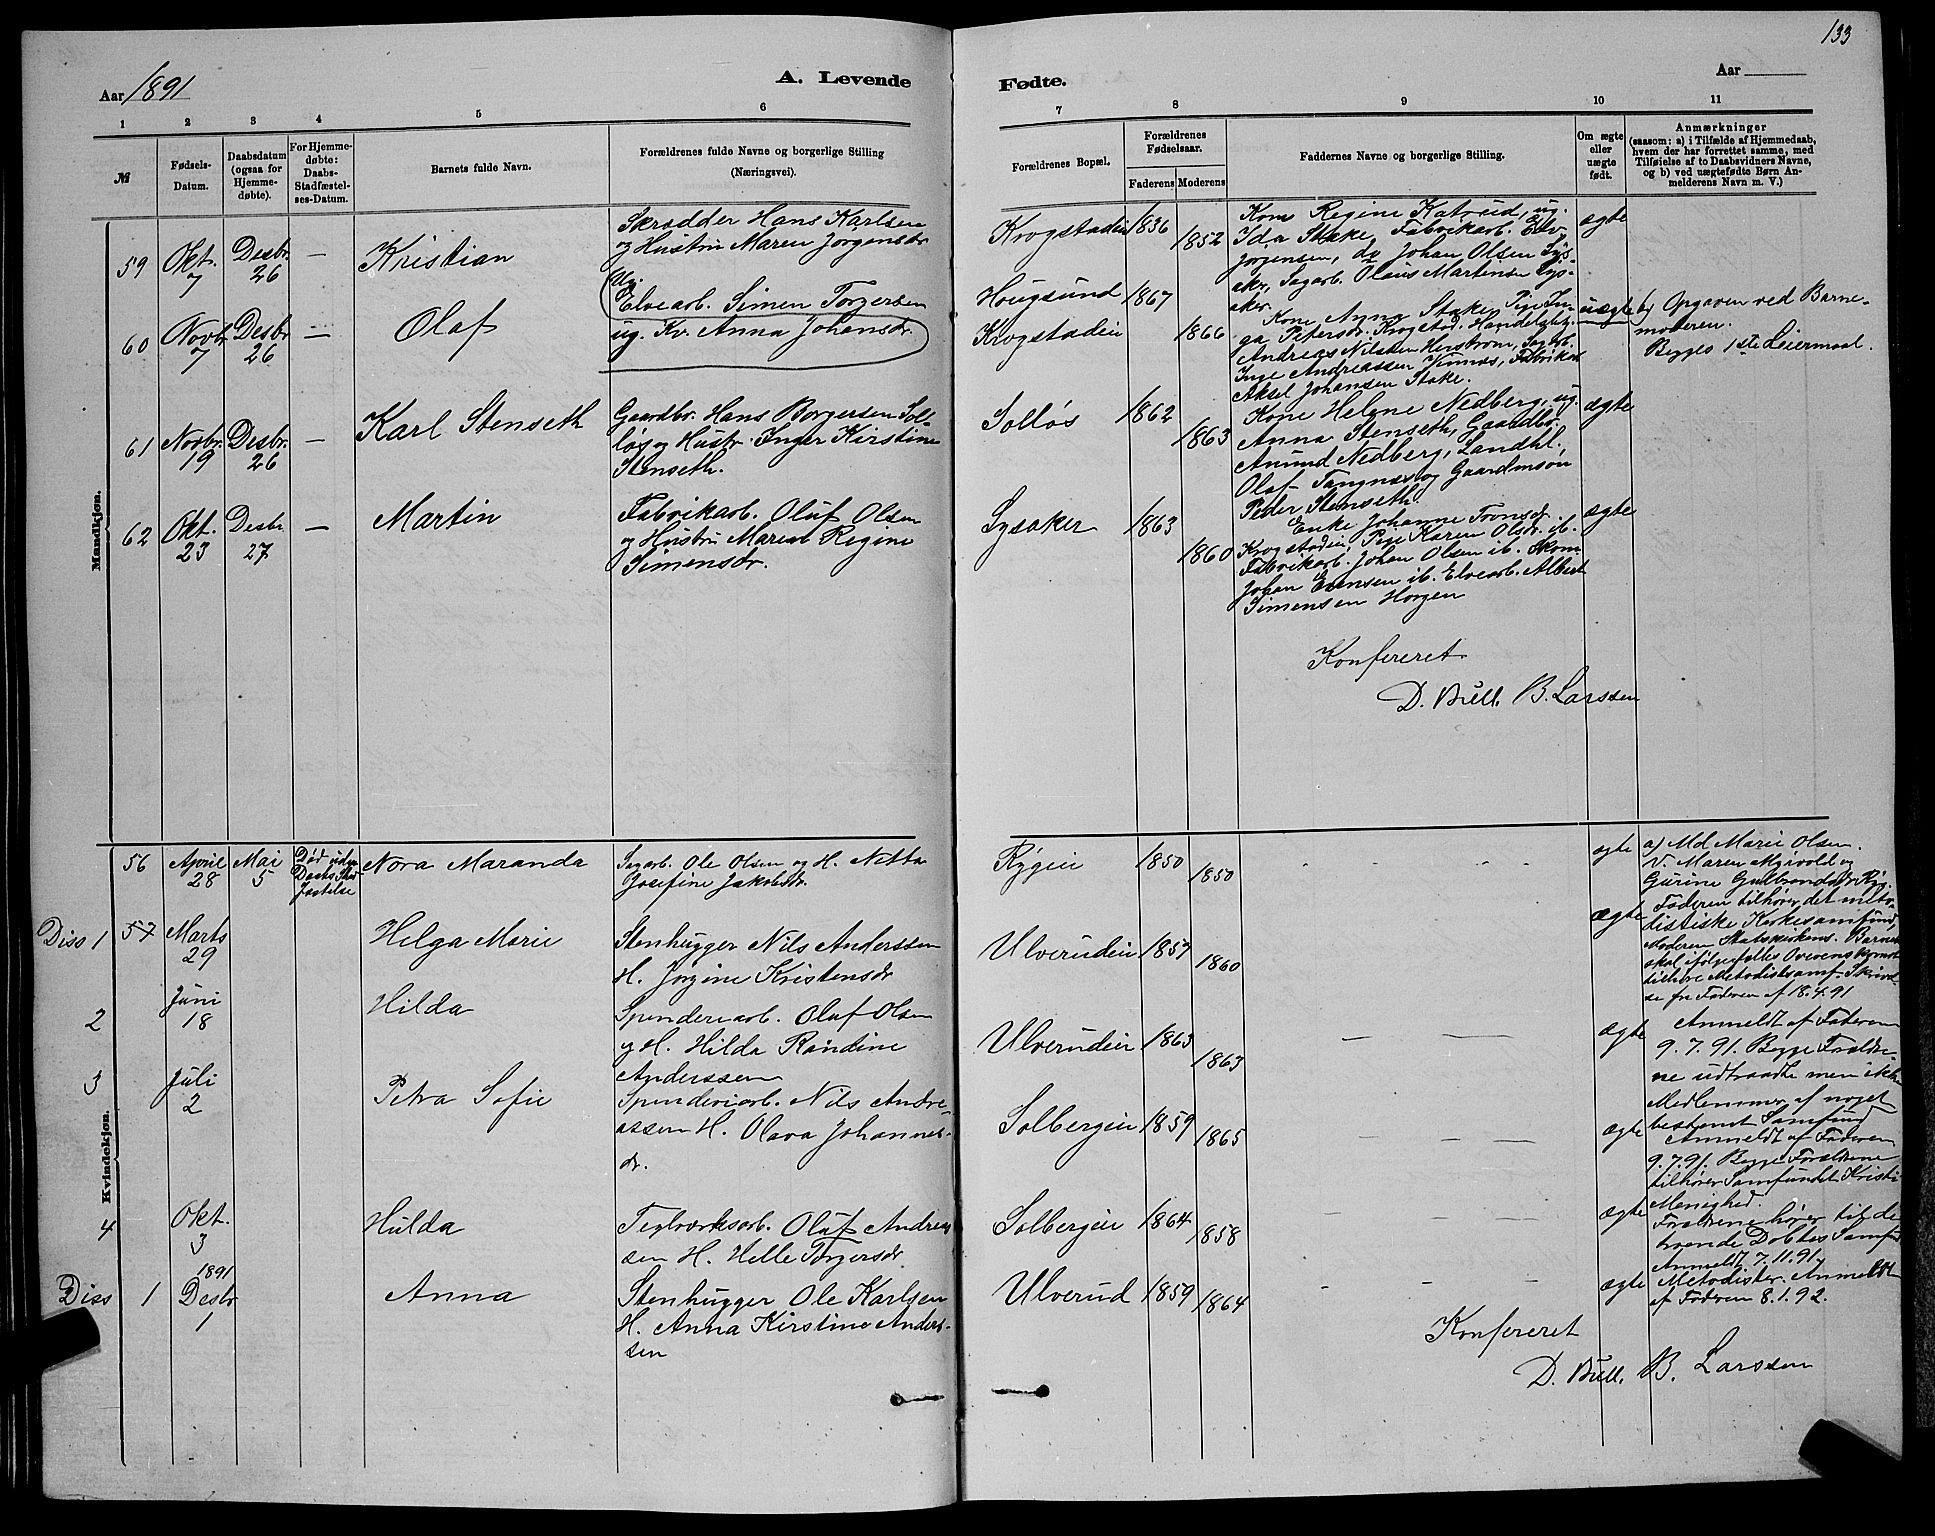 133
Aar 1891
A. Levende
Fødte.
Aar
1 2 3 4 5 6 7 8 9 10 11
№
Fødsels-
Datum.
Daabsdatum
(ogsaa for
Hjemme-
døbte).
For Hjemme-
døbte:
Daabs-
Stadfæstel-
ses-Datum.
Barnets fulde Navn.
Forældrenes fulde Navne og borgerlige Stilling
(Næringsvei).
Forældrenes Bopæl.
Forældrenes
Fødselsaar.
Faderens Moderens
Faddernes Navne og borgerlige Stilling.
Om ægte
eller
uægte
født.
Anmærkninger
(saasom: a) i Tilfælde af Hjemmedaab,
hvem der har forrettet samme, med
Tilføielse af to Daabsvidners Navne,
og b) ved uægtefødte Børn An-
melderens Navn m. V.)
Mandkjøn.
59
Okt.
7
Desbr.
26
—
Kristian
Skrædder Hans Karlsen
og Hustru Maren Jørgensdr
Krogstadeie
1836
1852
Kone Regine Katrud, ug.
Ida Stake Fabrikarb.
Jørgensen, do Johan Olsen Lys-
aker, Sagarb. Olaus Martinsen Lys-
aker.
ægte
60
Novb.
7
Desbr
26
—
Olaf
Ug.
Elvearb. Simen Torgersen
ug. Kv. Anna Johansdr.
Hougsund
Krogstadeie
1867
1866
Kone Anna Stake, Pige In-
ga Petersdr. Krogstad, Handelsbetj.
Andreas Nilsen Sagarb.
Inge Andreassen Fabrikarb
Aksel Johansen Stake.
uægte
b) Opgaven ved Barne-
moderen.
Begges 1ste Leiermaal.
61
Novbr.
19
Desbr.
26
—
Karl Stenseth
Gaardbr. Hans Borgersen Sol-
løs og Hustr. Inger Kirstine
Stenseth.
Solløs
1862
1863
Kone Helene Nedberg, ug.
Anna Stenseth, Gaardbr.
Anund Nedberg, Landhl.
Olaf Tangnæs og Gaardmsøn
Peder Stenseth.
ægte
62
Okt.
23
Desbr.
27
—
Martin
Fabrikarb. Oluf Olsen
og Hustru Maren Regine
Simensdr.
Lysaker
1863
1860
Enke Johanne Tronsdr.
Krogstadeie, Pige Karen Olsdr. ib.
Fabrikarb. Johan Olsen ib. Skom.
Johan Evensen ib. Elvearb. Albert
Simensen Horgen
ægte
Konfereret
D. Bull. B. Larssen
Kvindekjøn.
56
April
28
Mai
5
Død uden
Daabs Stad-
fæstelse
Nora Maranda
Sagarb. Ole Olsen og H. Netta
Josefine Jakobsdr.
Rygeie
1850
1850
ægte
a) Md Marie Olsen.
V. Maren og
Gurine Gulbrandsdr Ryg.
Diss 1
57
Marts
29
Helga Marie
Stenhugger Nils Anderssen
H. Jørgine Kristensdr
Ulverudeie
1857
1860
ægte
Faderen tilhører det meto-
distiske Kirkesamfund,
Moderen Statskirken. Barnet
skal ifølge fælles Overenskomst
tilhøre Metodistsamf. Skrivel-
se fra Faderen af 18.4.91
2
Juni
18
Hilda
Spinderiarb. Oluf Olsen
og H. Hilda Randine
Anderssen
Ulverudeie
1863
1863
ægte
Anmeldt af Faderen
9.7.91. Begge Forældre-
ne udtraadte men ikke
Medlemmer af noget
bestemt Samfund
3
Juli
2
Petra Sofie
Spinderiarb. Nils Andre-
assen H. Olava Johannes-
dr.
Solbergeie
1859
1865
ægte
Anmeldt af Faderen
9.7.91. Begge Forældrene
tilhører Samfundet Kristi
Menighed.
4
Okt.
3
Hulda
Teglværksarb. Oluf Andreas-
sen H. Helle Torgersdr
Solbergeie
1864
1858
ægte
Forældrene hører til de
troende Døbtes Samfund
Anmeldt 7.11.91.
Diss 1
1891
Desbr
1
Anna
Stenhugger Ole Karlsen
H. Anna Kirstine Anders-
sen
Ulverud
1859
1864
ægte
Metodister. Anmeldt
af Faderen 8.1.92.
Konfereret
D. Bull. B. Larssen